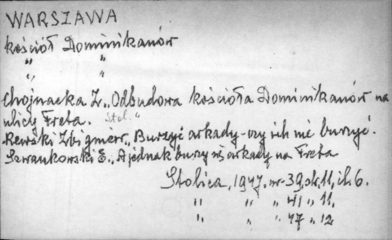 WARSZAWA
kościół Dominikanów
" "
" "
Chojnacka Z. „Odbudowa kościoła Dominikanów na
ulicy Freta. Stol."
Rewski Zbigniew „Burzyć arkady - czy ich nie burzyć.
Szwankowski E. „A jednak burzy się arkady na Freta
Stolica, 1947. nr 39, st. 11, il. 6.
" " " 41 " 11,
" " " 47 " 12